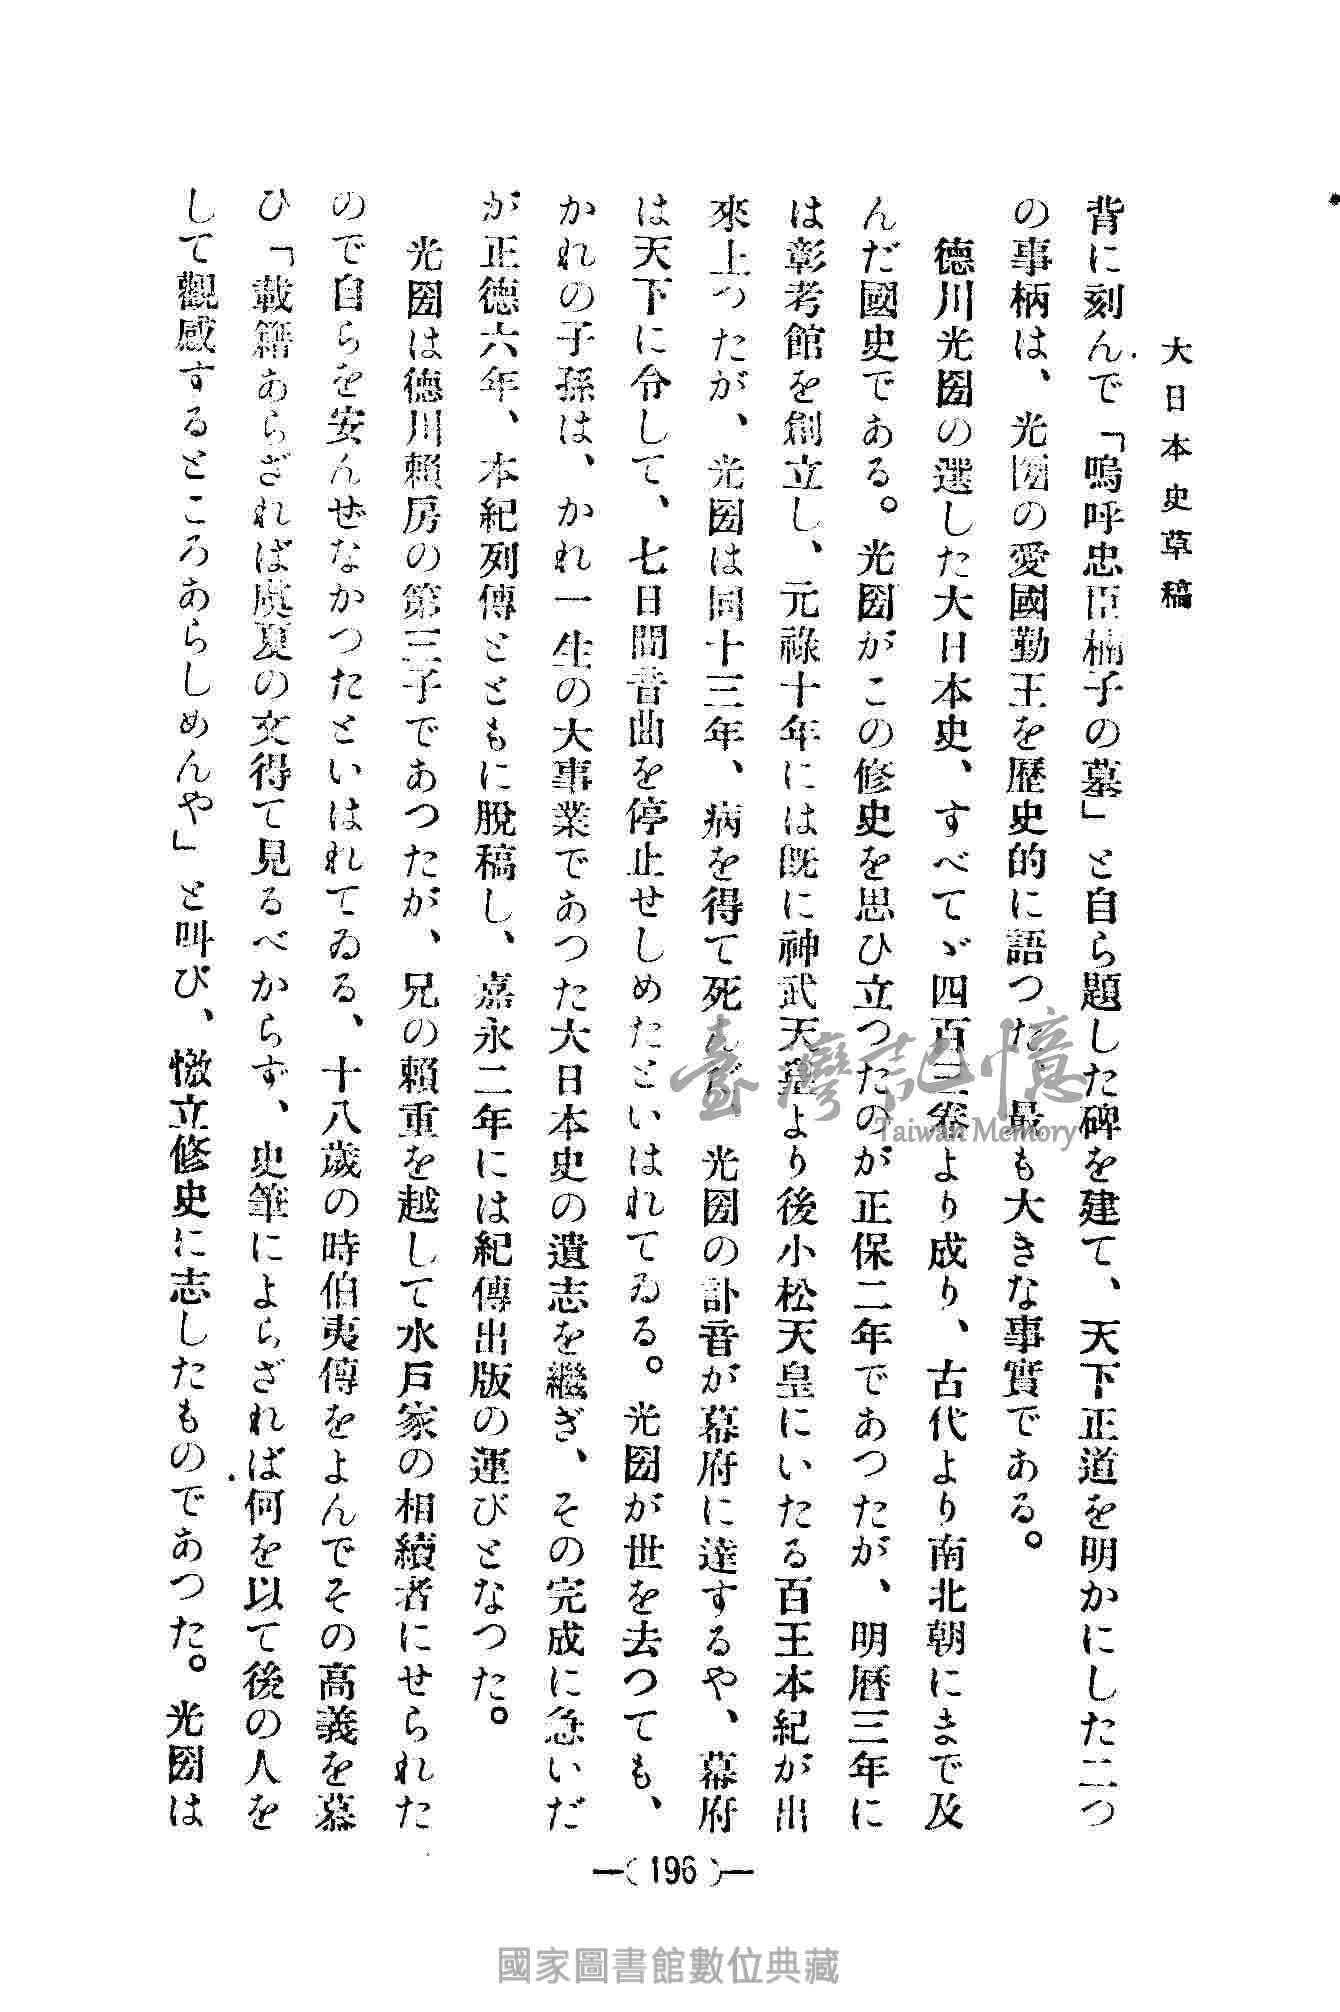 大日本史草稿
背に刻んで「嗚呼忠臣楠子の墓」と自ら題した碑を建て、天下正道を明かにした二つ
の事柄は、光圀の愛國勤王を歷史的に語つた、最も大きな事實である。
德川光圀の選した大日本史、すべてゞ四百三卷より成り、古代より南北朝にまで及
んだ國史である。光圀がこの修史を思ひ立つたのが正保二年であつたが、明曆三年に
は彰考館を創立し、元祿十年には既に神武天皇より後小松天皇にいたる百王本紀が出
來上つたが、光圀は同十三年、病を得て死んだ。光圀の訃音が幕府に達するや、幕府
は天下に令して、七日間音曲を停止せしめたといはれてゐる。光圀が世を去つても、
かれの子孫は、かれ一生の大事業であつた大日本史の遺志を繼ぎ、その完成に急いだ
が正德六年、本紀列傳とともに脫稿し、嘉永二年には紀傳出版の運びとなつた。
光圀は德川賴房の第三子であつたが、兄の賴重を越して水戶家の相續者にせられた
ので自らを安んぜなかつたといはれてゐる、十八歲の時伯夷傳をよんでその高義を慕
ひ「載籍あらざれば虞夏の文得て見るべからず、史筆によらざれば何を以て後の人を
して觀感するところあらしめんや」と叫び、憿立修史に志したものであつた。光圀は
—(196)—
臺灣記憶
Taiwan Memory
國家圖書館數位典藏